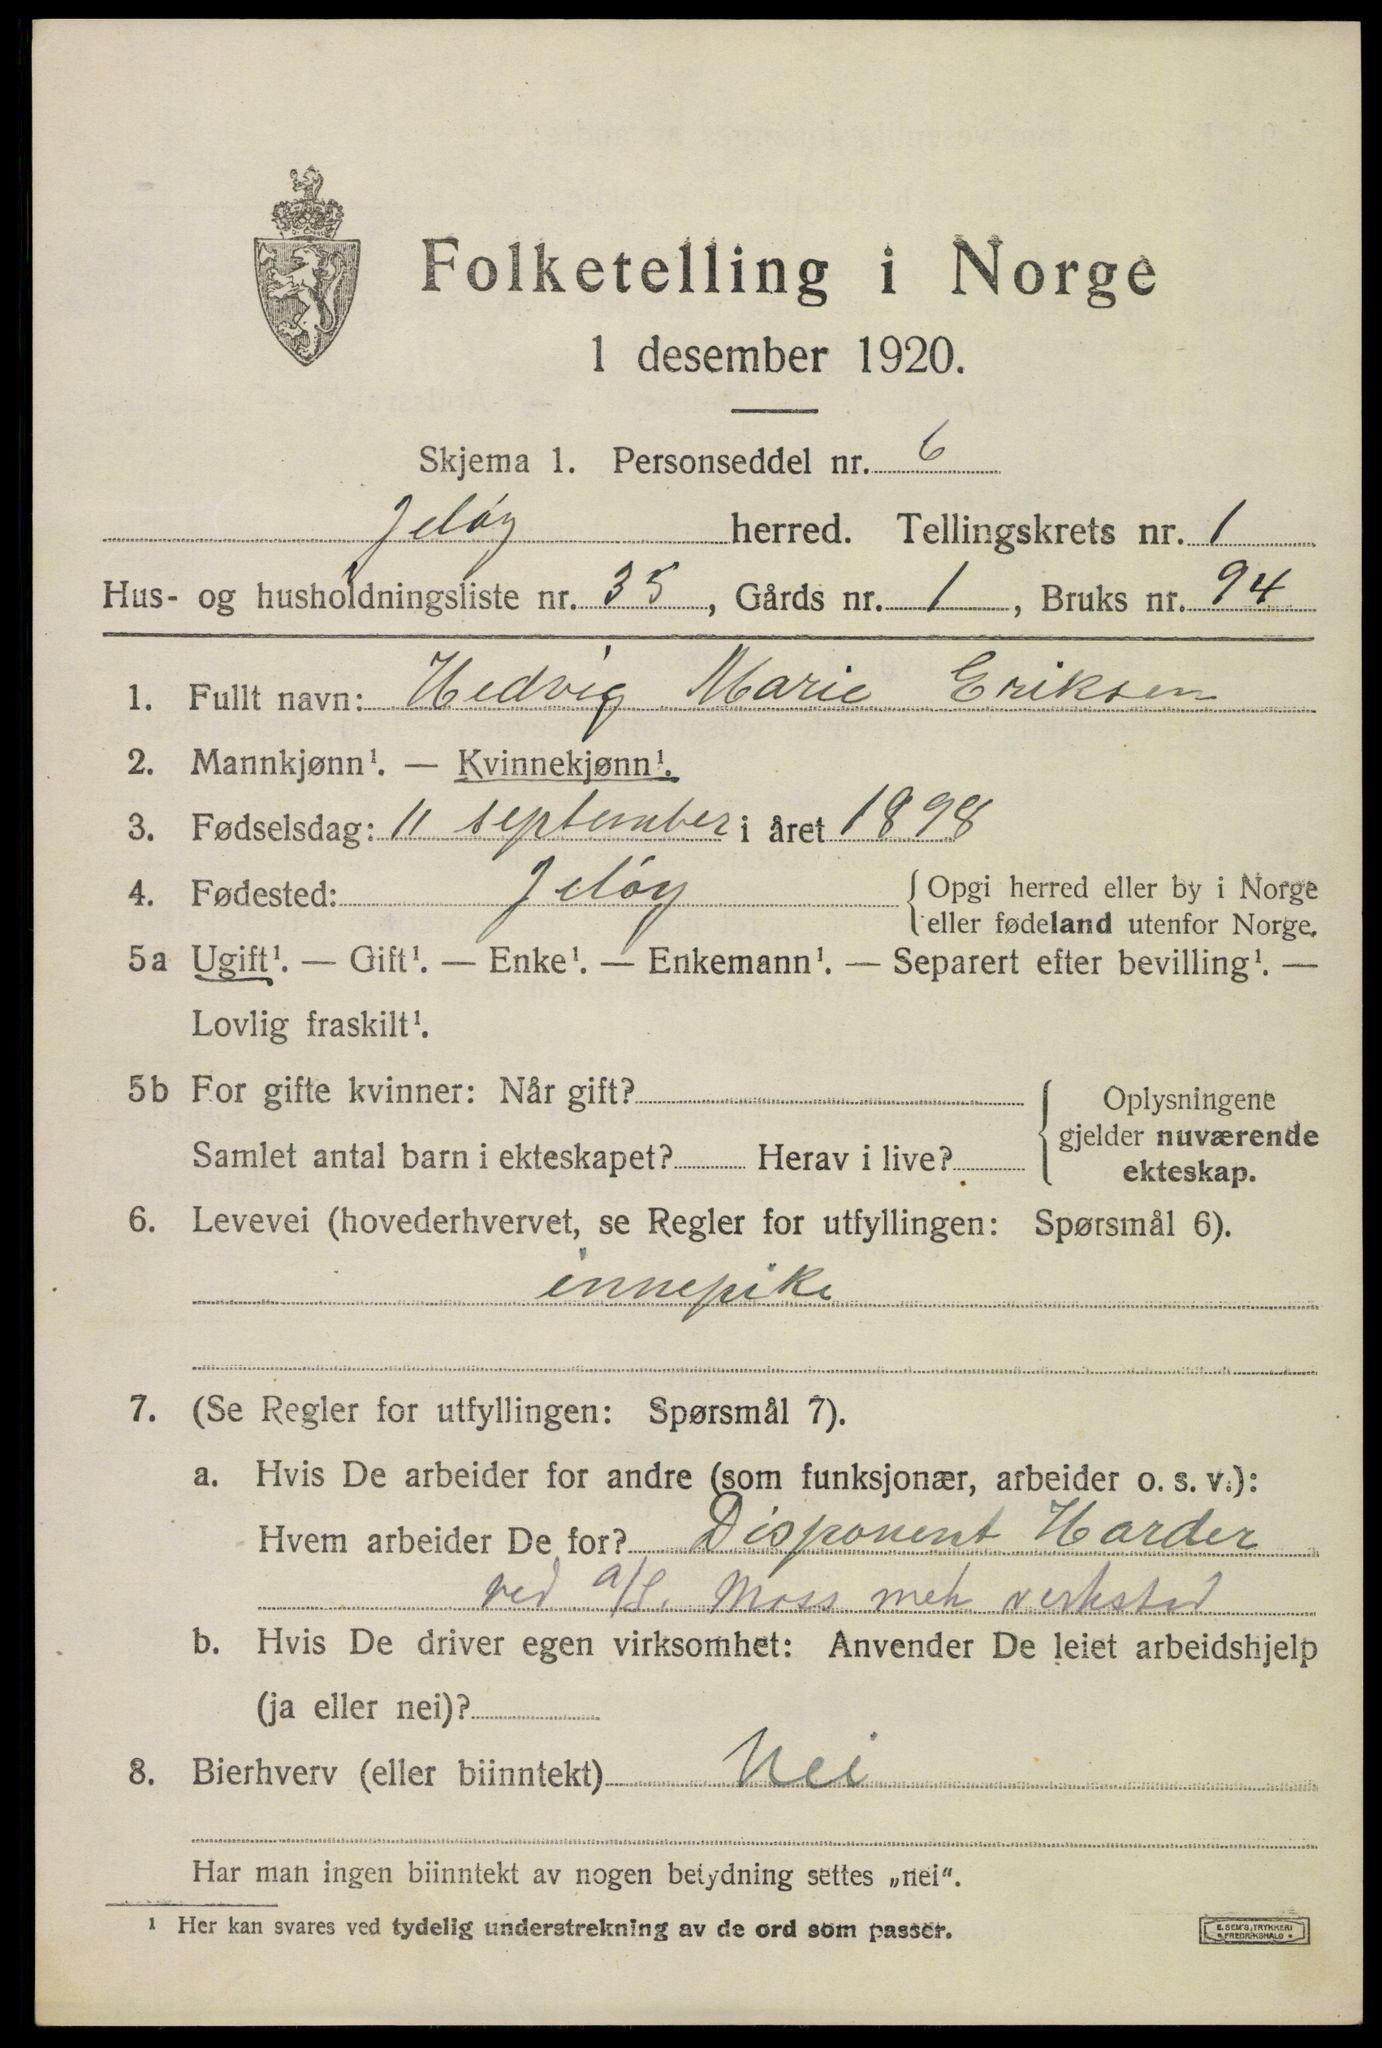 Folketelling i Norge
1 desember 1920.
Skjema 1. Personseddel nr. 6
Jeløy herred. Tellingskrets nr. 1
Hus- og husholdningsliste nr. 35, Gårds nr. 1, Bruks nr. 94
1. Fullt navn: Hedvig Marie Eriksen
2. Mannkjønn¹. — Kvinnekjønn¹.
3. Fødselsdag: 11 september i året 1898
4. Fødested: Jeløy { Opgi herred eller by i Norge
eller fødeland utenfor Norge.
5a Ugift¹. — Gift¹. — Enke¹. — Enkemann¹. — Separert efter bevilling¹. —
Lovlig fraskilt¹.
5b For gifte kvinner: Når gift? { Oplysningene
gjelder nuværende
Samlet antal barn i ekteskapet? Herav i live? ekteskap.
6. Levevei (hovederhvervet, se Regler for utfyllingen: Spørsmål 6).
innepike
7. (Se Regler for utfyllingen: Spørsmål 7).
a. Hvis De arbeider for andre (som funksjonær, arbeider o. s. v.):
Hvem arbeider De for? Disponent Harder
ved a/S. Moss meh verksted
b. Hvis De driver egen virksomhet: Anvender De leiet arbeidshjelp
(ja eller nei)?
8. Bierhverv (eller biinntekt) Nei
Har man ingen biinntekt av nogen betydning settes „nei“.
¹ Her kan svares ved tydelig understrekning av de ord som passer.
E. SEM'S TRYKKERI
FREDRIKSHALD